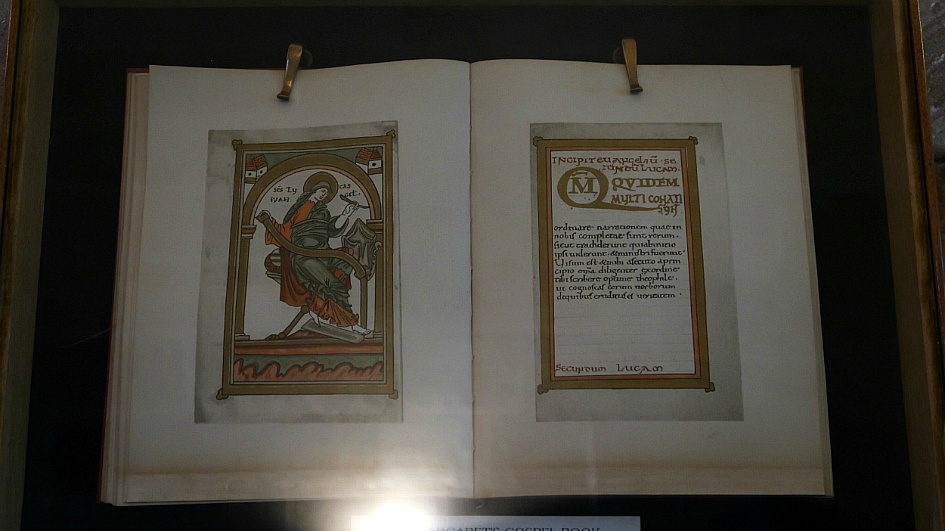 LU CAS
INCIPIT EUANGELIŪ · SE
CUNDŪ LUCAM
QUIDEM
MULTI CONATI
ordinare narrationem quae in
nobis completae sunt rerum ·
sicut tradiderunt
ipsi uiderunt · & ministri fuerunt
Uisum est & mihi assecuto a prin
cipio diligenter ex ordine
tibi scribere optime theophile ·
ut cognoscas eorum uerborum
dequibus eruditus es ueritatem ·
SECUNDUM LUCAM
GOSPEL BOOK